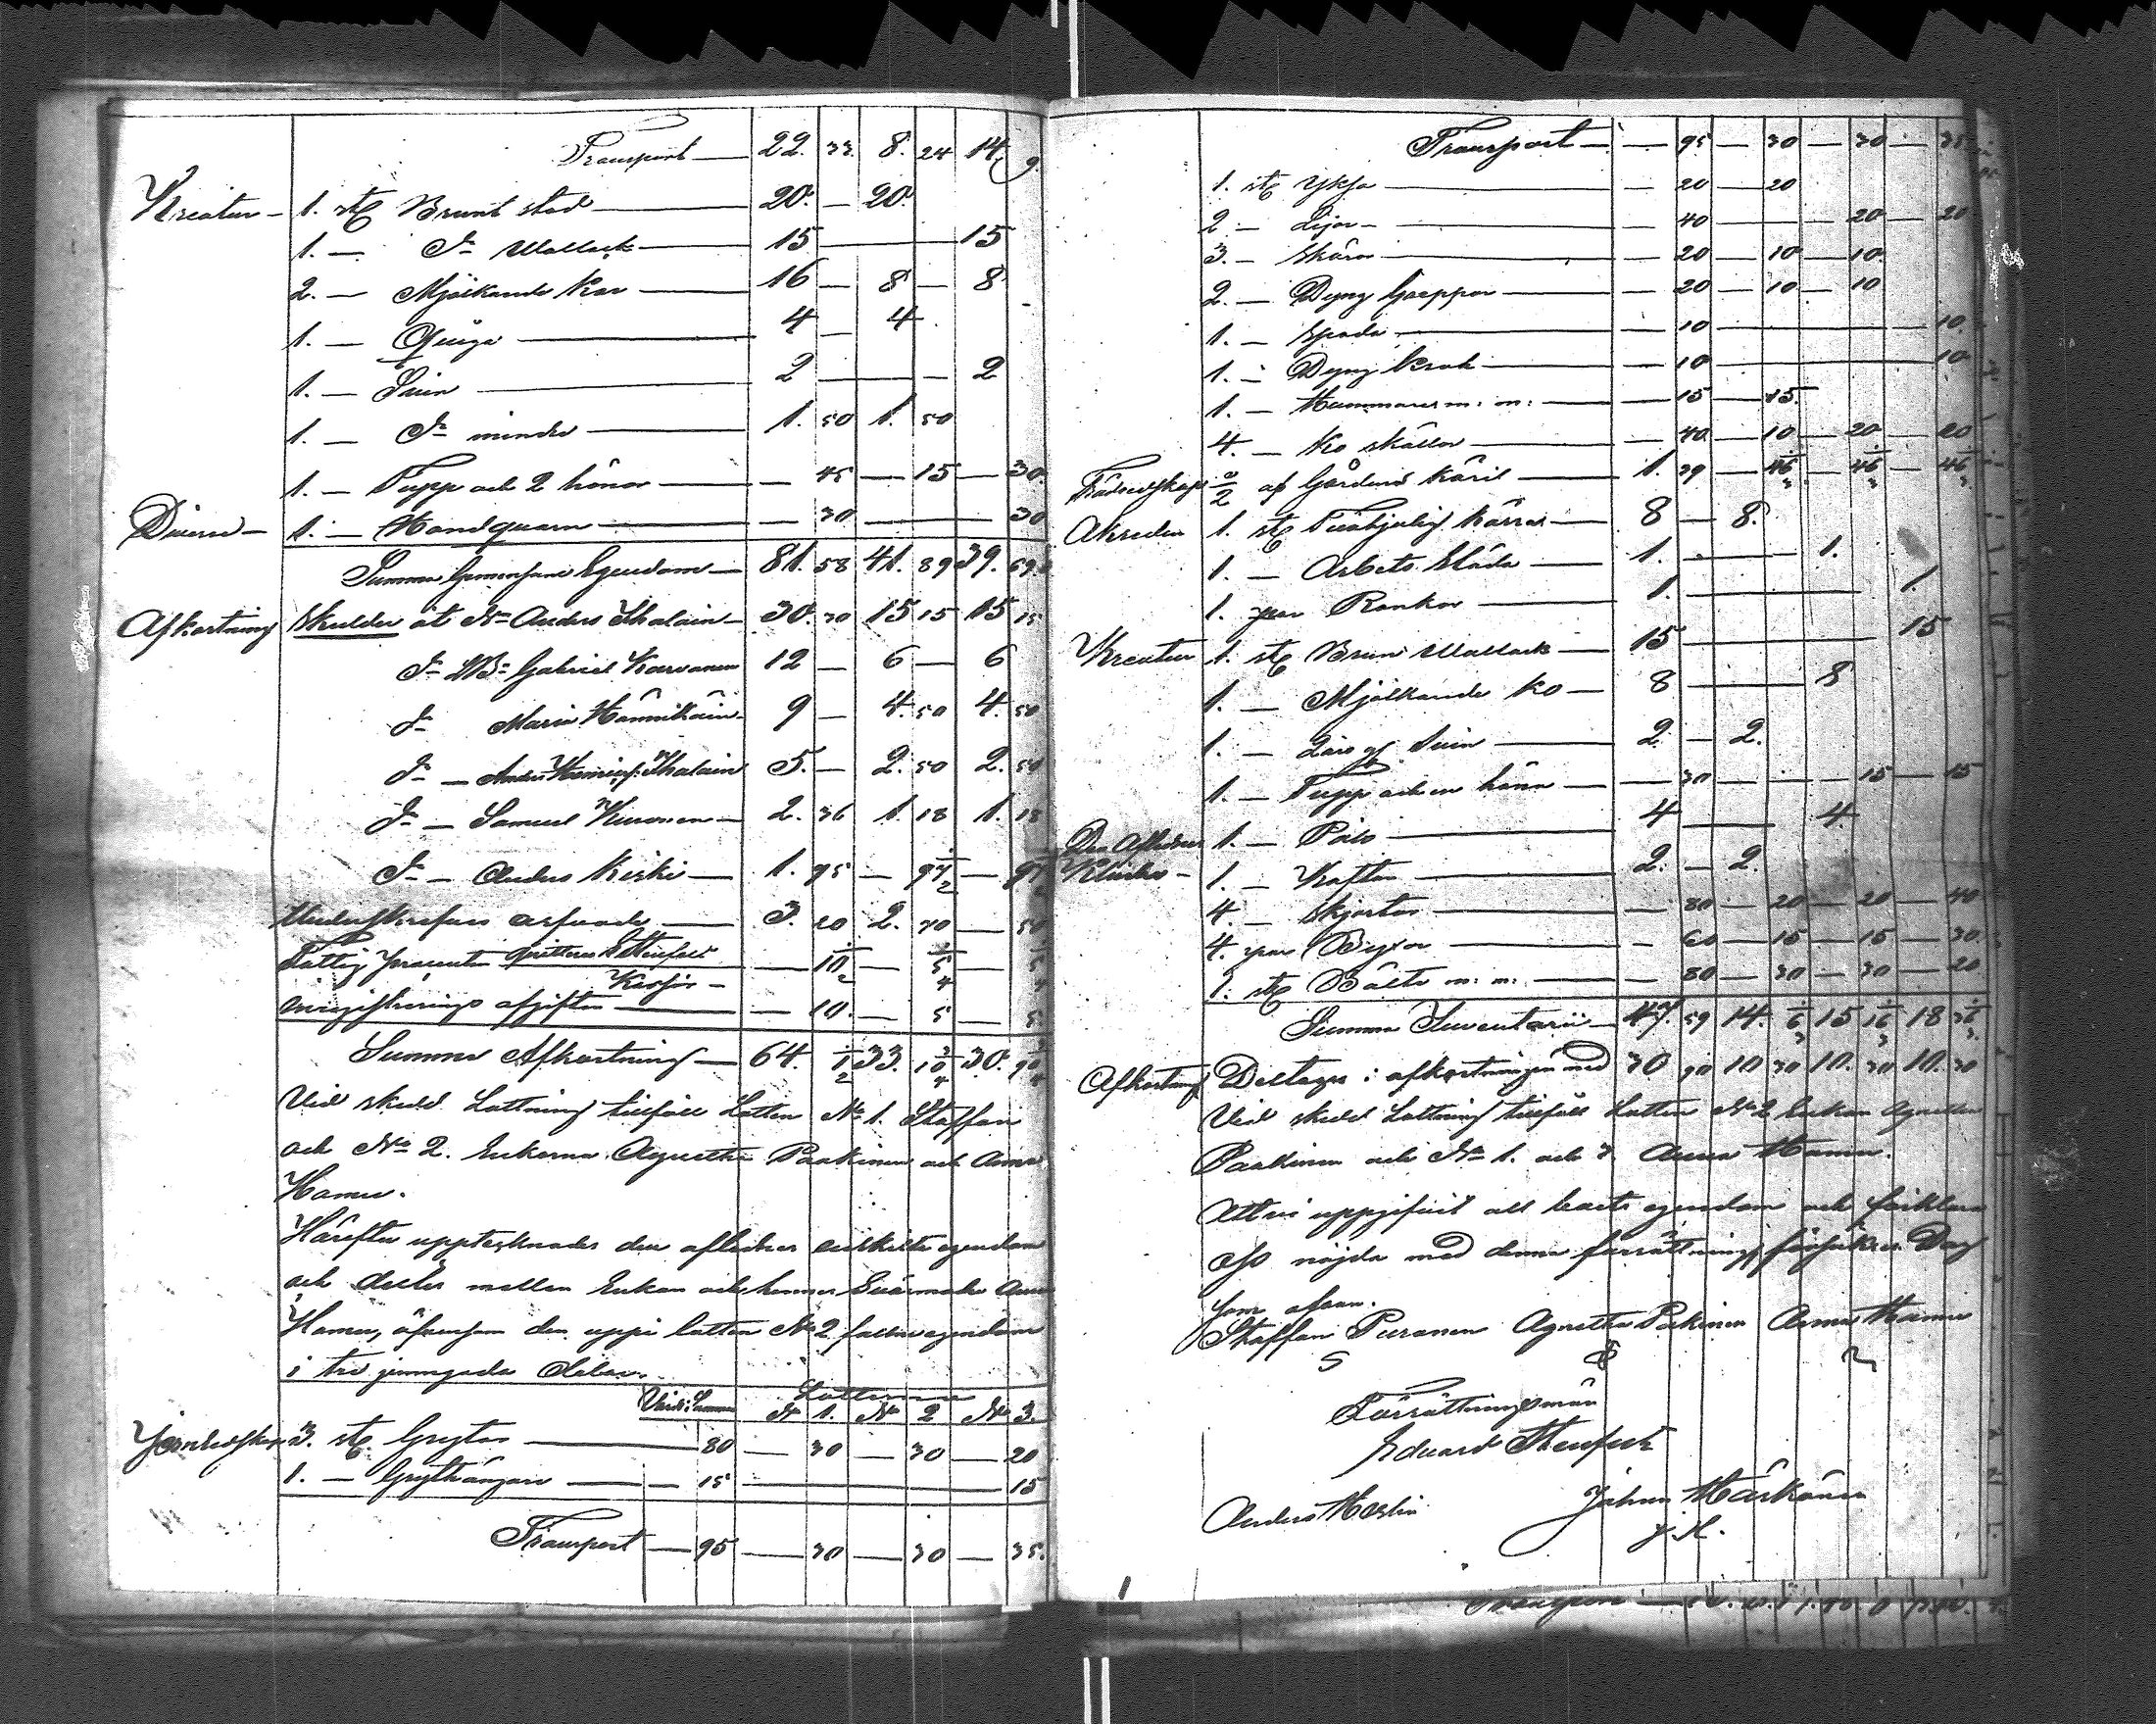 Transport — 22. 33. 8. 24 14. 9.
Kreatur — 1. st Brunt stod — 20. — 20.
1. — Do Wallack — 15 — 15
2. — Mjölkande Kor — 16 — 8 — 8
1. — Qviga — 4 — 4
1. — Svin — 2 — 2
1. — Do mindre — 1. 50 1. 50
1. — Tupp och 2 hönor — 45 — 15 — 30.
Diverse — 1. — Handquarn — 30 — 30
Summa Gemensam Egendom — 81. 58 41. 89 39. 69.
Afkortning Skulder åt Anders Ihalain — 30. 30 15 15 15 15
Do Gabriel Karvanen 12 — 6 — 6
Do Maria Hännikäin — 9 — 4. 50 4. 50
Do — Anders Ihalain 5. — 2. 50 2. 50
Do — Samuel Kinonen — 2. 36 1. 18 1. 18
Do — Anders Keski — 1. 95 — 97 1/2 — 97 1/2
Underskrefvne arfvode — 3. 20 2. 70 — 50
Fattig procenter — 10 1/2 — 5 1/4 — 5 1/4
— 10. — 5 — 5
Summa Afkortning — 64. 1/2 33. 10 3/4 30. 90 3/4
Vid skedd Lottning tillföll Lotten No 1. Staffan
och No 2. Enkorna Agnetha Paakinen och Anna
Hamu.
Härefter upptecknades den aflednes enskilta egendom
och delts mellan Enkan och hennes Svärmoder Anna
Hamu, äfvensom den uppå lotten No 2 fallne egendom
i tre jemngoda delar.
Värde: Summa Lotterne
No 1. No 2 No 3.
Jernredskap 3. st. Grytor — 80 — 30 — 30 — 20
1. — Grythängare — 15 — 15
Transport — 95 — 30 — 30 — 35.
Transport — 95 — 30 — 30 — 35
1. st Yxa — 20 — 20
2 — Lijor — 40 — 20 — 20
3. — Skäror — 20 — 10 — 10.
2. — Dyng Greppar — 20 — 10 — 10
1. — Spada — 10 — 10.
1. — Dyng Krok — 10 — 10
1. — Hammare m: m: — 15 — 15.
4. — Ko skällor — 40 — 10 — 20 — 20
Trädredskap 2/2 af Gårdens Käril — 1. 39 — 46 1/3 — 46 1/3 — 46 1/3
Åkreden 1. st Tvåhjulig Kärra — 8 — 8.
1. — Arbets Släda — 1. — 1.
1. par Rankor — 1. — 1.
Kreatur 1. st Brun Wallack — 15 — 15
1. — Mjölkande Ko — 8 — 8
1. — Svin — 2. — 2.
1. — Tupp och en höna — 30 — 15 — 15
Den Aflednes 1. — Päls — 4 — 4
Kläder — 1. — Kaftan — 2. — 2.
4 — Skjortor — 80 — 20 — 20 — 40
4. par Byxor — 60 — 15 — 15 — 30.
1. st Bälte m: m: — 80 — 30 — 30 — 20
Summa Inventarii — 47. 59 14. 6 1/3 15 16 1/3 18 36 1/3
Afkortning Deltages i afkortningen med 30 90 10 30 10. 30 10. 30
Vid skedd Lottning tillföll Lotten No 2 Enkan Agnetha
Paakinen och No 1. och 3 Anna Hamu.
Att vi uppgifvit all boets egendom och förklara
oss nöjda med denna förrättning försäkrar Dag
som ofvan.
Staffan Puranen Agnetha Pakinen Anna Hamu
Förrättningsmän
Eduard Stenfelt
Anders Hertin Johan Härkönen
J. H.
Transport